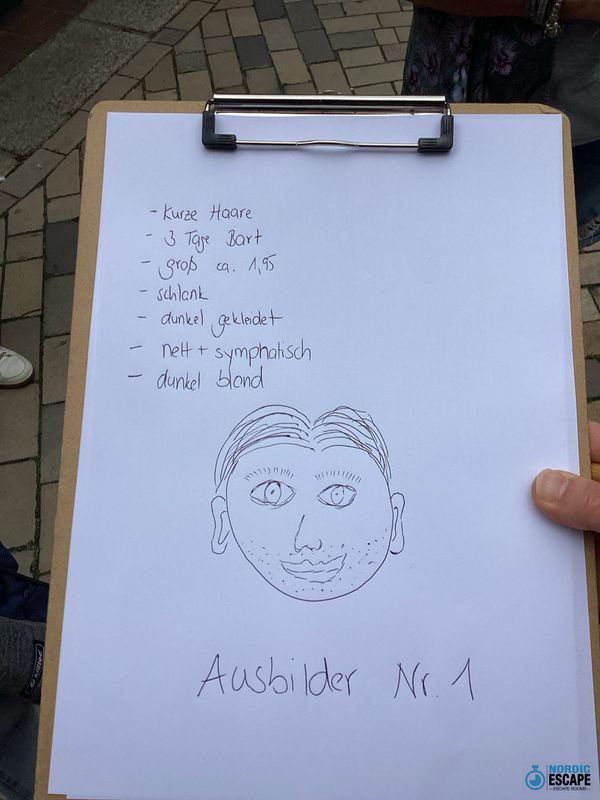 - kurze Haare
- 3 Tage Bart
- groß ca. 1,95
- schlank
- dunkel gekleidet
- nett + symphatisch
- dunkel blond
Ausbilder Nr. 1
NORDIC
ESCAPE
ESCAPE ROOMS